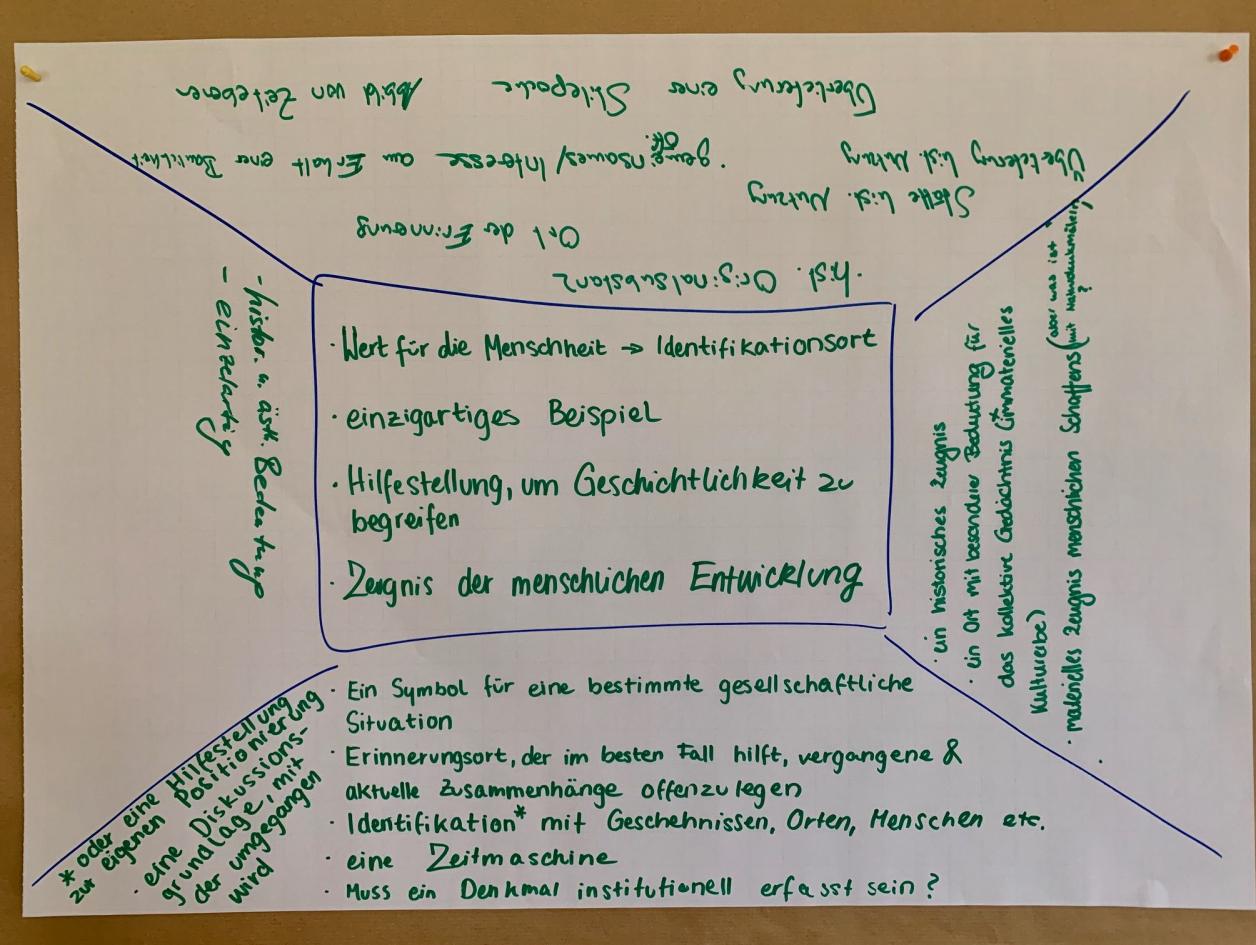 · Wert für die Menschheit → Identifikationsort
· einzigartiges Beispiel
· Hilfestellung, um Geschichtlichkeit zu
begreifen
· Zeugnis der menschlichen Entwicklung
· Ein Symbol für eine bestimmte gesellschaftliche
Situation
· Erinnerungsort, der im besten Fall hilft, vergangene &
aktuelle Zusammenhänge offenzulegen
· Identifikation* mit Geschehnissen, Orten, Menschen etc.
· eine Zeitmaschine
· Muss ein Denkmal institutionell erfasst sein?
* oder eine Hilfestellung
zur eigenen Positionierung
· eine Diskussions-
grundlage, mit
der umgegangen
wird
- histor. u. ästh. Bedeutung
- einzelartig
· hist. Originalsubstanz
Ort der Erinnerung
Stätte hist. Nutzung
· gemeinsames/ öff. Interesse am Erhalt einer
Überlieferung hist. Nutzung
Überlieferung einer Stilepoche Abbild von Zeitebenen
· ein historisches Zeugnis
· ein Ort mit besonderer Bedeutung für
das kollektive Gedächtnis (immaterielles
Kulturerbe)
· materielles Zeugnis menschlichen Schaffens (aber was ist
mit Naturdenkmälern
?